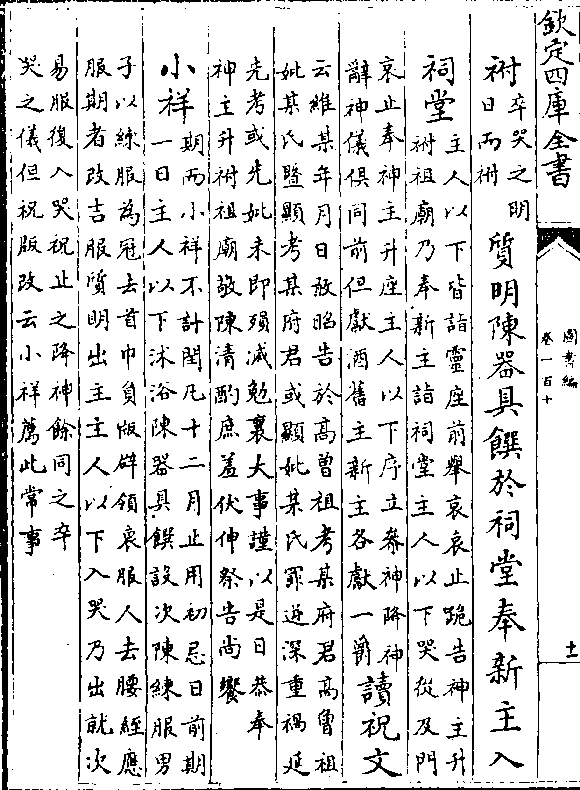 欽定四庫全書
圖書編
卷一百十
十一
祔
卒哭之明
日而祔
質明陳器具饌於祠堂奉新主入
祠堂
主人以下皆詣靈座前舉哀哀止跪告神主升
祔祖廟乃奉新主詣祠堂主人以下哭從及門
哀止奉神主升座主人以下序立參神降神
辭神儀俱同前但獻酒舊主新主各獻一爵
讀祝文
云維某年月日敢昭告於高曾祖考某府君高曾祖
妣某氏暨顯考某府君或顯妣某氏罪逆深重禍延
先考或先妣未即殞滅勉襄大事謹以是日恭奉
神主升祔祖廟敬陳清酌庶羞伏伸祭告尚饗
小祥
期而小祥不計閏凡十二月止用初忌日前期
一日主人以下沐浴陳器具饌設次陳練服男
子以練服為冠去首巾負版辟領衰服人去腰絰應
服期者改吉服質明出主主人以下入哭乃出就次
易服復入哭祝止之降神餘同之卒
哭之儀但祝版改云小祥薦此常事